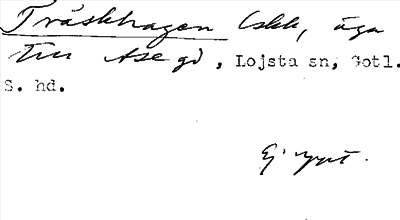 Träskhagen (skk, äga
till Asegd, Lojsta sn, Gotl.
S. hd.
Ej uppt.